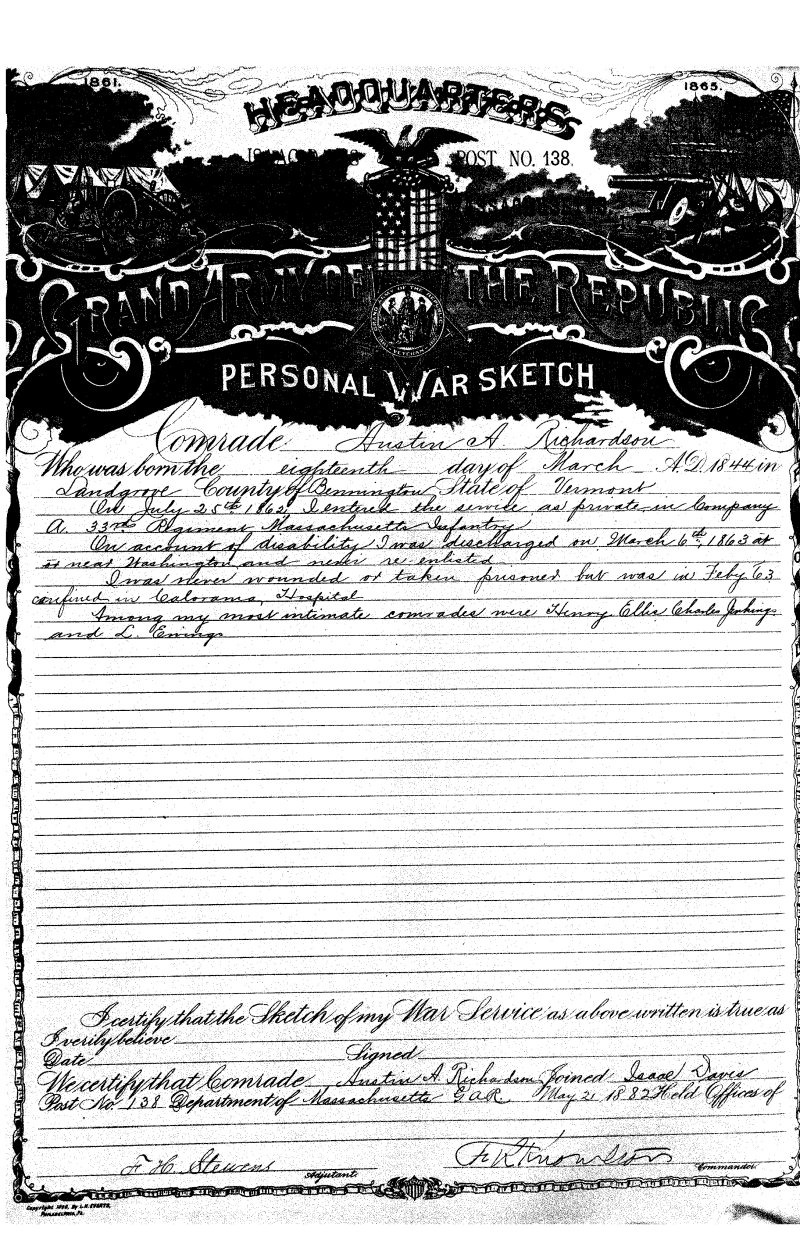 1861.
1865.
HEADQUARTERS
POST NO. 138.
GRAND ARMY OF THE REPUBLIC
PERSONAL WAR SKETCH
Comrade Austin A. Richardson
Who was born the eighteenth day of March A.D. 1844 in
Landgrove County of Bennington State of Vermont
On July 25th 1862, I entered the service as private in Company
A. 33rd Regiment Massachusetts Infantry
On account of disability I was discharged on March 6th, 1863 at
or near Washington and never re-enlisted.
I was never wounded or taken prisoner but was in Feby 63
confined in Calorama Hospital
Among my most intimate comrades were Henry Ellis Charles Jenkins
and L. Ewings
I certify that the Sketch of my War Service as above written is true as
I verily believe
Date Signed
We certify that Comrade Austin A Richardson Joined Isaac Davis
Post No. 138 Department of Massachusetts G.A.R. May 21 1882 Held Offices of
F. H. Stevens
Adjutant. Commander.
Copyright By L.H. EVERTS,
PHILADELPHIA, PA.